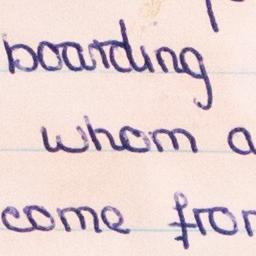 boarding
whom a
come from